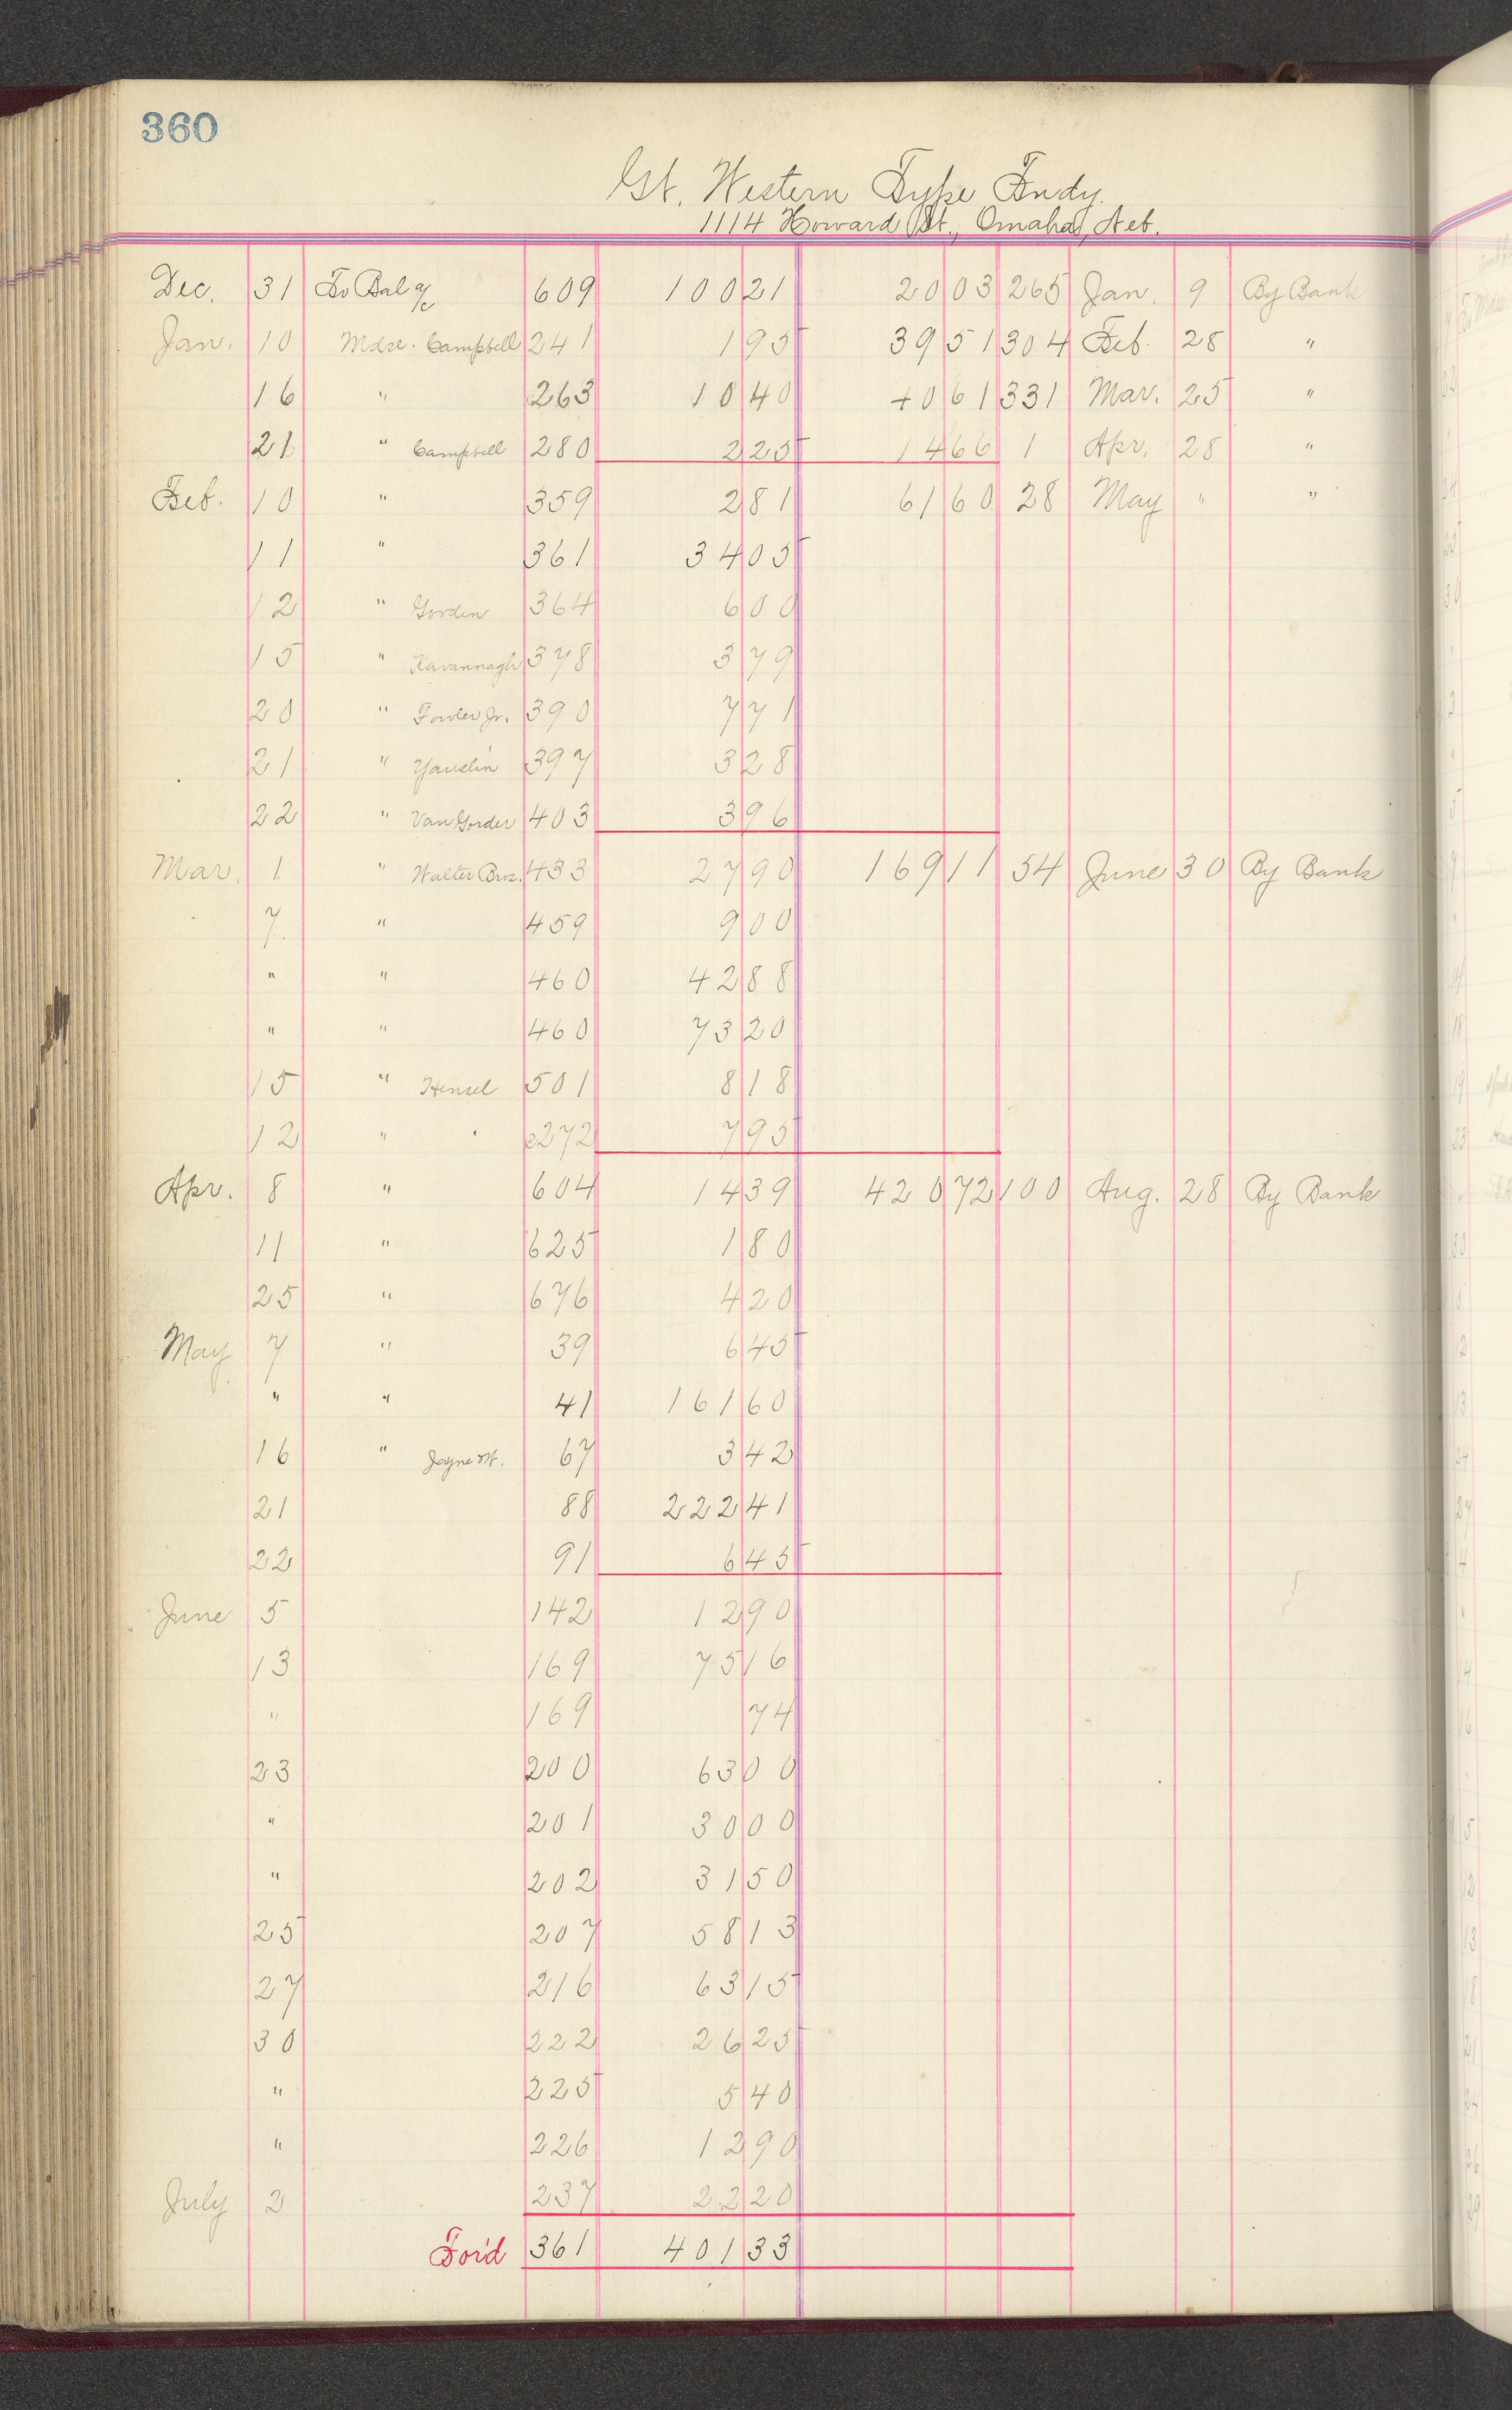 360
Gt. Western Type Fndy.
1114 Howard St., Omaha, Neb.
Dec. 31 To Bal a/c 609 100 21 20 03 265 Jan. 9 By Bank
Jan. 10 Mdse. Campbell 241 1 95 39 51 304 Feb. 28 "
16 " 263 10 40 40 61 331 Mar. 25 "
21 " Campbell 280 2 25 14 66 1 Apr. 28 "
Feb. 10 " 359 2 81 61 60 28 May " "
11 " 361 34 05
12 " Gorden 364 6 00
15 " Kavannagh 378 3 79
20 " Fowler Jr. 390 7 71
21 " 397 3 28
22 " Van Gorder 403 3 96
Mar. 1 " Walter Bros. 433 27 90 169 11 54 June 30 By Bank
7 " 459 9 00
" " 460 42 88
" " 460 73 20
15 " Hensel 501 8 18
12 " " c272 7 95
Apr. 8 " 604 14 39 420 72 100 Aug. 28 By Bank
11 " 625 1 80
25 " 676 4 20
May 7 " 39 6 45
" " 41 161 60
16 " 67 3 42
21 88 222 41
22 91 6 45
June 5 142 12 90
13 169 75 16
" 169 74
23 200 63 00
" 201 30 00
" 202 31 50
25 207 58 13
27 216 63 15
30 222 26 25
" 225 5 40
" 226 12 90
July 2 237 22 20
For'd 361 401 33